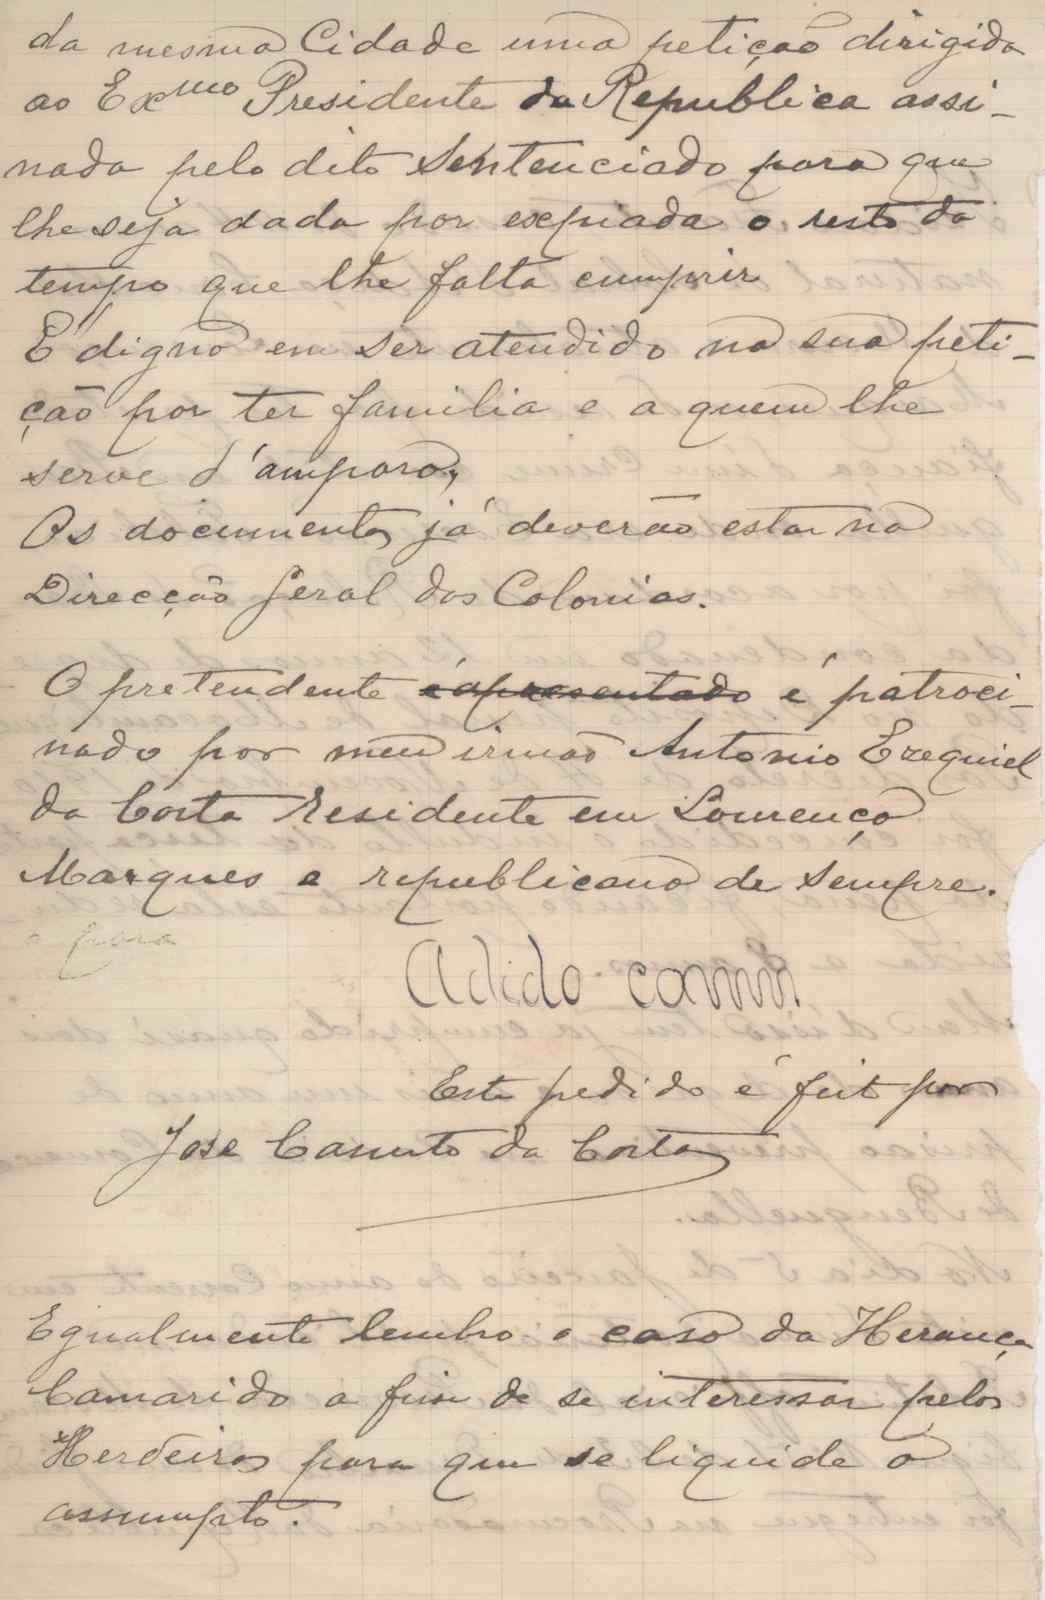 da mesma Cidade uma petição dirigida
ao Exmo Presidente da Republica assi-
nada pelo dito Sentenciado para que
lhe seja dada por expiada o resto do
tempo que lhe falta cumprir
É digno em ser atendido na sua peti-
ção por ter familia e a quem lhe
serve d'amparo,
Os documentos já deverão estar na
Direcção Geral das Colonias.
O pretendente é apresentado é patroci-
nado por meu irmão Antonio Ezequiel
da Costa residente em Lourenço
Marques e republicano de sempre.
e para
Adido
Este pedido é feito por
José Canuto da Costa
Egualmente lembro o caso da Herança
Camarido a fim de se interessar pelos
Herdeiros para que se liquide o
assumpto.